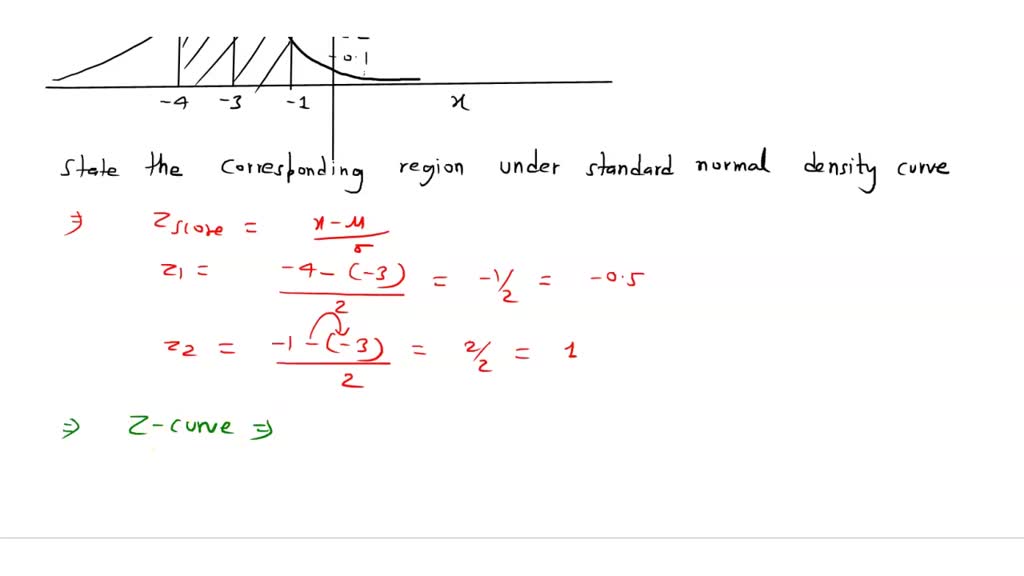 -0.1
-4 -3 -1 x
State the corresponding region under standard normal density curve
⇒ Zscore = x-μ/σ
z1 = -4-(-3)/2 = -1/2 = -0.5
z2 = -1-(-3)/2 = 2/2 = 1
⇒ Z-curve ⇒